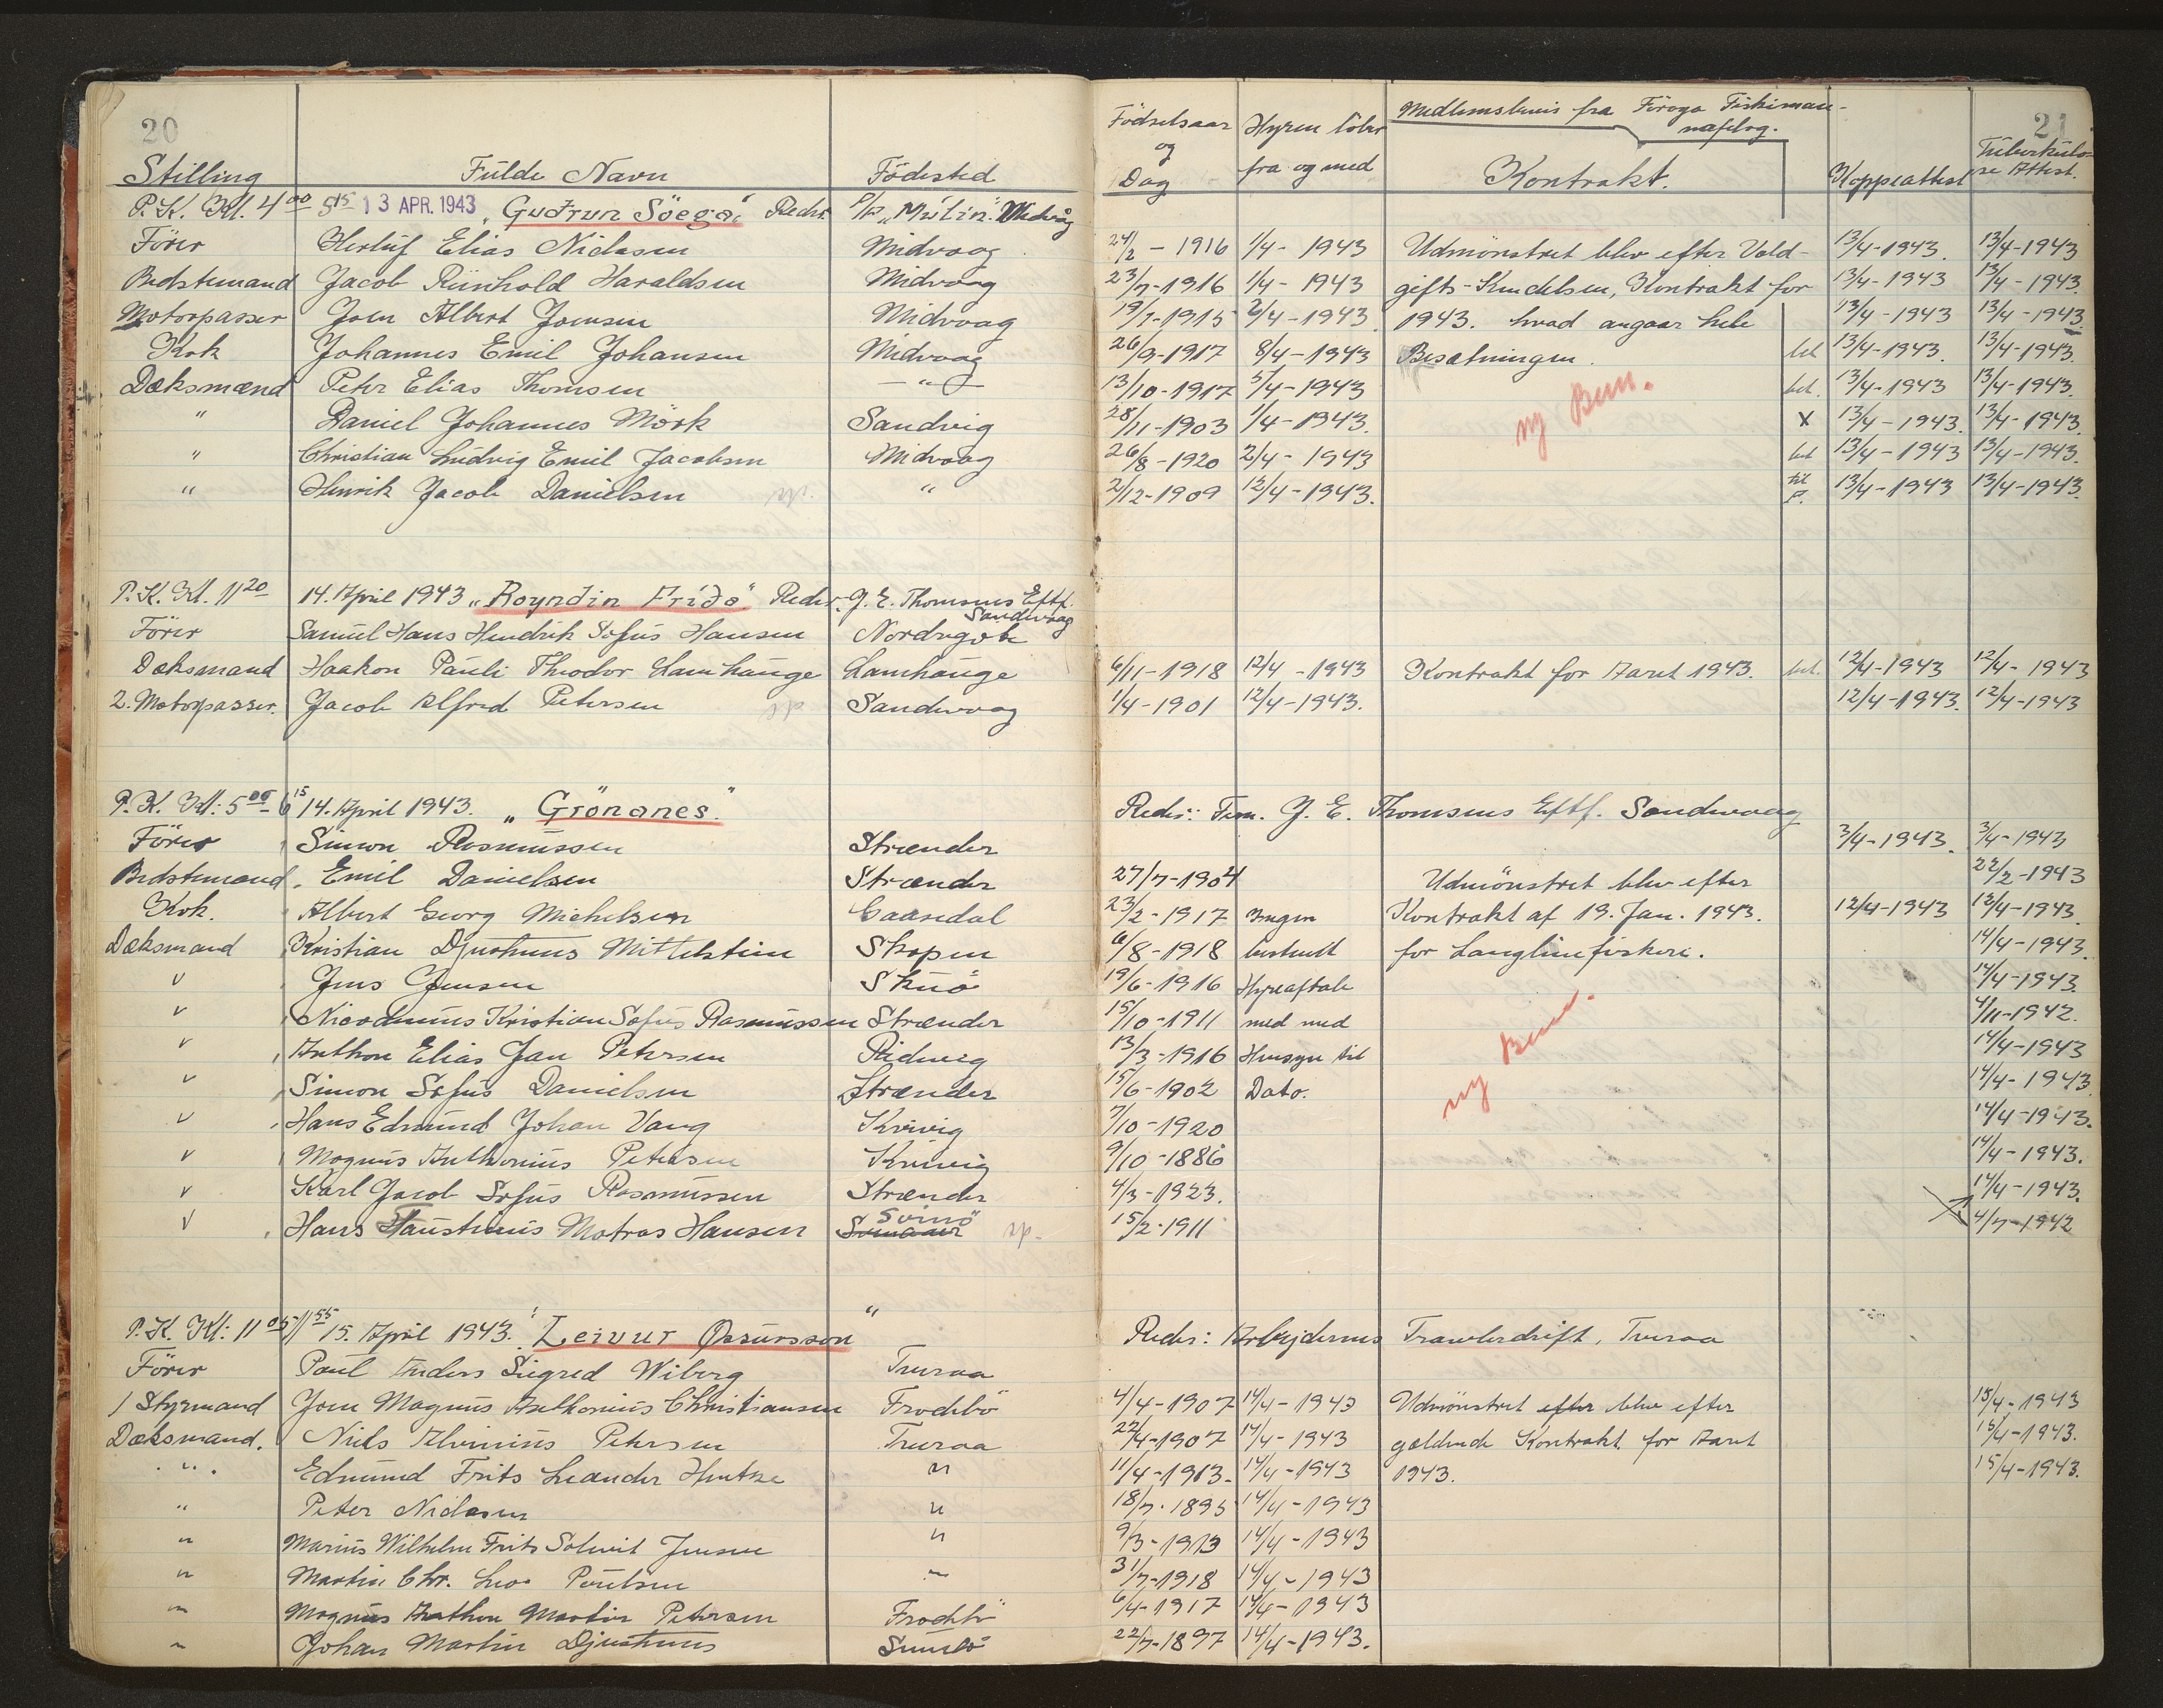 20
Stilling Fulde Navn Födested
P.K. Kl. 4⁰⁰ 5¹⁵ 13 APR. 1943 „Guðrun Söega" Reder P/R „Mútin". Midvåg
Förer Herluf Elias Niclasen Midvaag
Bedstemand Jacob Reinhold Haraldsen Midvaag
Motorpasser Joen Albert Joensen Midvaag
Kok Johannes Emil Johansen Midvaag
Dæksmænd Peter Elias Thomsen — " —
" Daniel Johannes Mörk Sandvig
" Christian Ludvig Emil Jacobsen Midvaag
" Henrik Jacob Danielsen sp. "
P.K. Kl. 11²⁰ 14. April 1943 „Royndin Fríða" Reder. J. E. Thomsens Eftf. Sandevaag
Förer Samuel Hans Hendrik Sofus Hansen Nordregöte
Dæksmand Haakon Pauli Theodor Lamhauge Lamhauge
2. Motorpasser. Jacob Alfred Petersen sp Sandevaag
P.K. Kl: 5⁰⁰ - 6¹⁵ 14. April 1943. „Grönanes".
Förer Simon Rasmussen Strænder
Bedstemand. Emil Danielsen Strænder
Kok. Albert Georg Michelsen Caasedal
Dæksmand Kristian Djurhuus Mittelstein Skopen
v Jens Jensen Skuö
v Nicodemus Kristian Sofus Rasmussen Strænder
v Anthon Elias Jan Petersen Ridevig
v Simon Sofus Danielsen Strænder
v Hans Edmund Johan Vang Kvivig
v Magnus Anthonius Petersen Kvivig
v Karl Jacob Sofus Rasmussen Strænder
v Hans Faustinus Matras Hansen Svinö sp.
P.K. Kl: 11⁰⁵-11⁵⁵ 15. April 1943. "Leivur Øssursson"
Förer Poul Anders Siegred Wiberg Tveraa
1 Styrmand Joen Magnus Anthonius Christiansen Frodebö
Dæksmand. Niels Alvinius Petersen Tveraa
" Edmund Frits Leander Hentze "
" Peter Niclasen "
" Marius Wilhelm Frits Solmit Jensen "
" Martin Chr. Leo Poulsen "
" Magnus Anthon Martin Petersen Frodebö
" Johan Martin Djurhuus Sumbö
21
Födselsaar og Dag Hyren löber fra og med Medlemsbevis fra Föroya Fiskimannafelag. Kontrakt. Koppeattest Tuberkulose Attest.
24/2 - 1916 1/4 - 1943 Udmönstret blev efter Vold- 13/4-1943. 13/4-1943
23/7-1916 1/4 - 1943 gifts-Kendelsen, Kontrakt for 13/4-1943 13/4-1943.
19/7-1915 2/4-1943 1943. hvad angaar hele 13/4-1943 13/4-1943.
26/9-1917 8/4-1943 Besætningen. bet 13/4-1943. 13/4-1943.
13/10-1917 5/4-1943 ny Bem. bet. 13/4-1943 13/4-1943.
28/11-1903 1/4-1943. X 13/4-1943. 13/4-1943.
26/8-1920 2/4-1943 bet 13/4-1943 13/4-1943.
2/12-1909 12/4-1943. til P. 13/4-1943 13/4-1943.
6/11-1918 12/4-1943 Kontrakt for Aaret 1943. bet. 12/4-1943 12/4-1943
1/4-1901 12/4-1943. 12/4-1943. 12/4-1943
Reder: Firm. J. E. Thomsens Eftf. Sandevaag
3/4-1943. 3/4-1943
27/7-1904 Udmönstret blev efter 22/2-1943
23/2-1917 Ingen Kontrakt af 19. Jan. 1943. 12/4-1943 12/4-1943.
6/8-1918 bestemt for Langlinefiskeri. 14/4-1943.
19/6-1916 Hyreaftale 14/4-1943.
15/10-1911 med med 4/11-1942.
13/3-1916 Hensyn til ny Bem. 14/4-1943
15/6-1902 Dato. 14/4-1943
7/10-1920 14/4-1943.
9/10-1886 14/4-1943.
4/3-1923. 14/4-1943.
15/2-1911 4/7-1942
Reder: Arbejdernes Trawlerdrift, Tveraa
4/4-1907 14/4-1943 Udmönstret efter blev efter 15/4-1943
22/4-1907 14/4-1943 gældende Kontrakt for Aaret 15/4-1943.
11/4-1913. 14/4-1943 1943. 15/4-1943.
18/7-1895 14/4-1943
9/3-1913 14/4-1943
31/7-1918 14/4-1943
6/4-1917 14/4-1943
22/7-1897 14/4-1943.